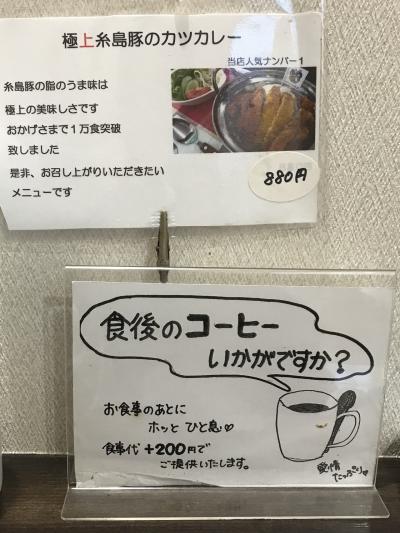 極上糸島豚のカツカレー
当店人気ナンバー１
糸島豚の脂のうま味は
極上の美味しさです
おかげさまで１万食突破
致しました
是非、お召し上がりいただきたい
メニューです
880円
食後のコーヒー
いかがですか？
お食事のあとに
ホッと ひと息♡
食事代 +200円で
ご提供いたします。
愛情
たっぷり♡